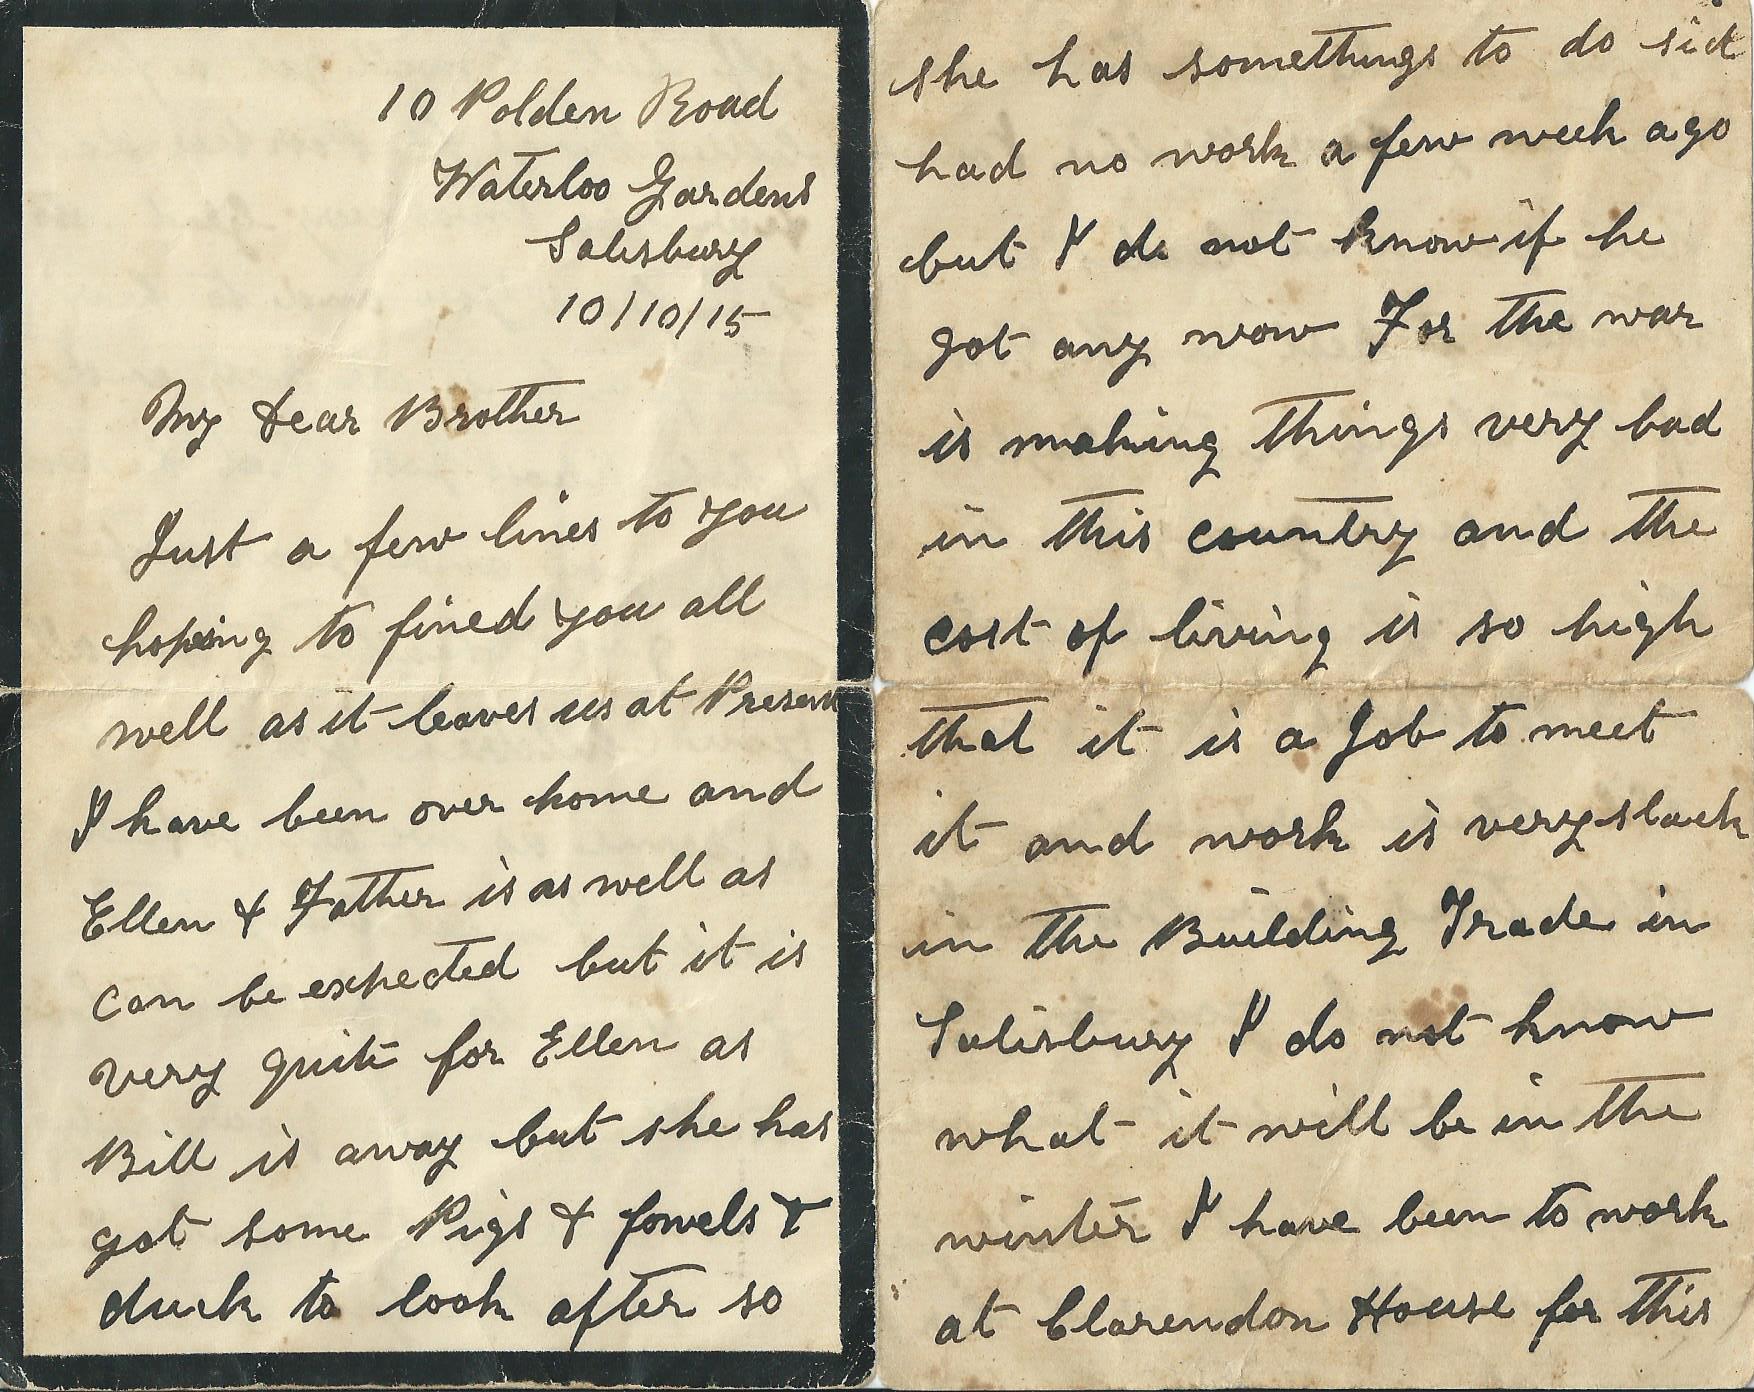 10 Polden Road
Waterloo Gardens
Salisbury
10/10/15
My dear Brother
Just a few lines to you
hoping to fined you all
well as it leaves us at Present
I have been over home and
Ellen & Father is as well as
can be expected but it is
very quite for Ellen as
Bill is away but she has
got some Pigs & fowels &
duck to look after so
she has somethings to do sid
had no work a few week ago
but I do not know if he
got any now For the war
is making things very bad
in this country and the
cost of living is so high
that it is a Job to meet
it and work is very slack
in the Building Trade in
Salisbury I do not know
what it will be in the
winter I have been to work
at Clarendon House for this